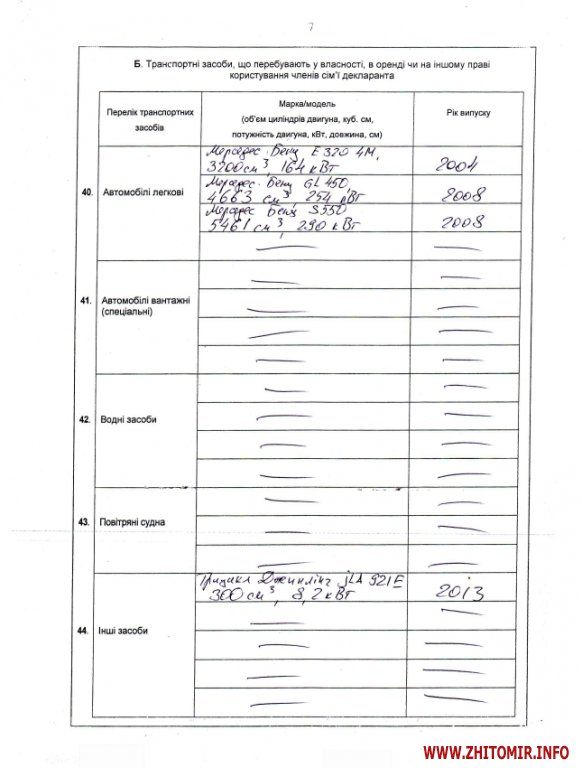 7
Б. Транспортні засоби, що перебувають у власності, в оренді чи на іншому праві
користування членів сім'ї декларанта
Перелік транспортних
засобів
Марка/модель
(об'єм циліндрів двигуна, куб. см,
потужність двигуна, кВт, довжина, см)
Рік випуску
40. Автомобілі легкові
Мерседес-Бенц Е 320 4М,
3200 см³, 164 кВт
2004
Мерседес-Бенц GL 450,
4663 см³, 254 кВт
2008
Мерседес Бенц S550
5461 см³, 290 кВт
2008
41. Автомобілі вантажні
(спеціальні)
42. Водні засоби
43. Повітряні судна
44. Інші засоби
Трицикл Джинлінг JLA 921E
300 см³, 8,2 кВт
2013
WWW.ZHITOMIR.INFO